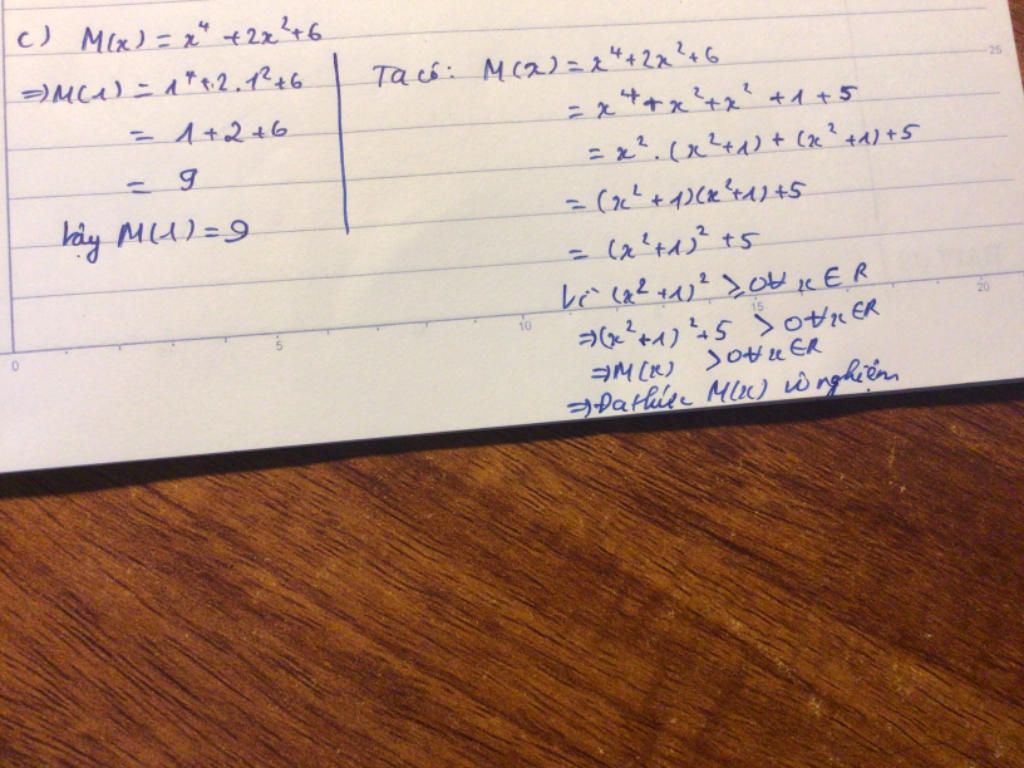 c) M(x) = x⁴ + 2x² + 6
⇒ M(1) = 1⁴ + 2.1² + 6
= 1 + 2 + 6
= 9
Vậy M(1) = 9
Ta có: M(x) = x⁴ + 2x² + 6
= x⁴ + x² + x² + 1 + 5
= x².(x² + 1) + (x² + 1) + 5
= (x² + 1)(x² + 1) + 5
= (x² + 1)² + 5
Vì (x² + 1)² ≥ 0 ∀ x ∈ R
⇒ (x² + 1)² + 5 > 0 ∀ x ∈ R
⇒ M(x) > 0 ∀ x ∈ R
⇒ Đa thức M(x) vô nghiệm
0 5 10 15 20
25